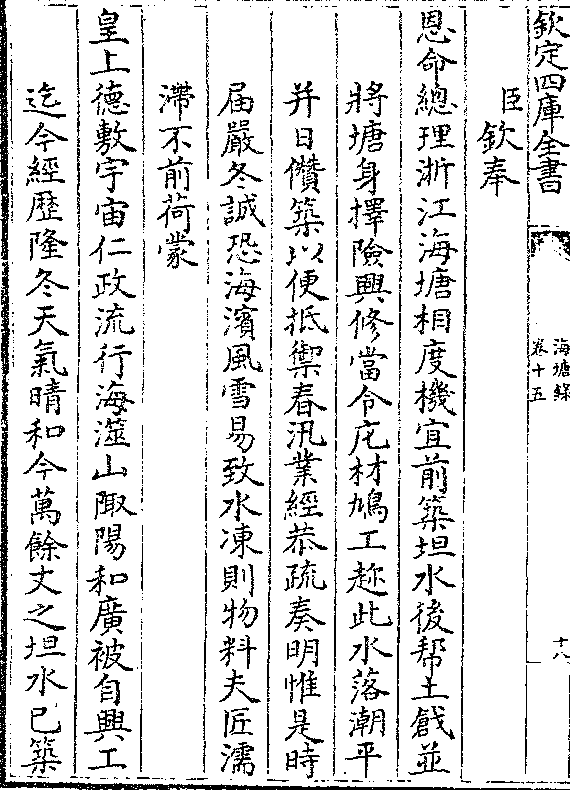 欽定四庫全書
海塘録
卷十五
十八
臣欽奉
恩命總理浙江海塘相度機宜前築坦水後幇土戧並
將塘身擇險興修當令庀材鳩工趂此水落潮平
并日儹築以便抵禦春汛業經恭疏奏明惟是時
届嚴冬誠恐海濱風雪易致水凍則物料夫匠濡
滯不前荷蒙
皇上德敷宇宙仁政流行海澨山陬陽和廣被自興工
迄今經歴隆冬天氣晴和今萬餘丈之坦水已築